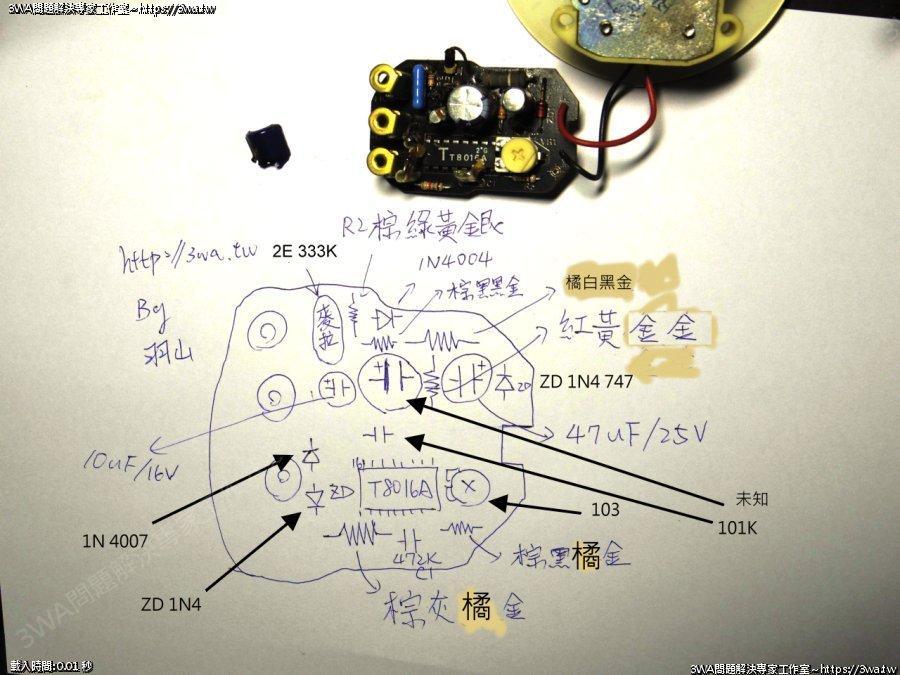 3WA問題解決專家工作室~https://3wa.tw
3WA問題解決專家工作室~https://3wa.tw
T
2*G
T8016A
R2棕綠黃銀
http://3wa.tw
2E 333K
1N4004
棕黑黑金
橘白黑金
By
羽山
麥拉
紅黃金金
ZD
ZD 1N4 747
10uF/16V
47uF/25V
16
ZD
T8016A
未知
101K
103
1N 4007
472K
C1
棕黑橘金
ZD 1N4
棕灰橘金
載入時間:0.01 秒
3WA問題解決專家工作室~https://3wa.tw